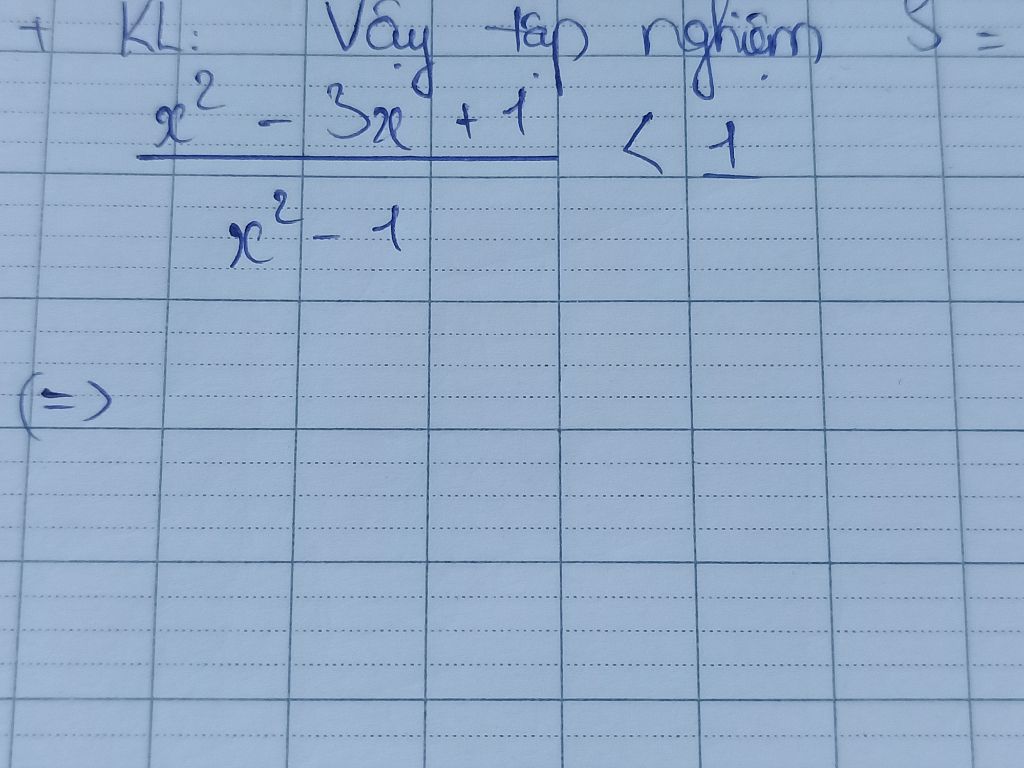 + KL: Vậy tập nghiệm S =
x² - 3x + 1 < 1
x² - 1
(=>